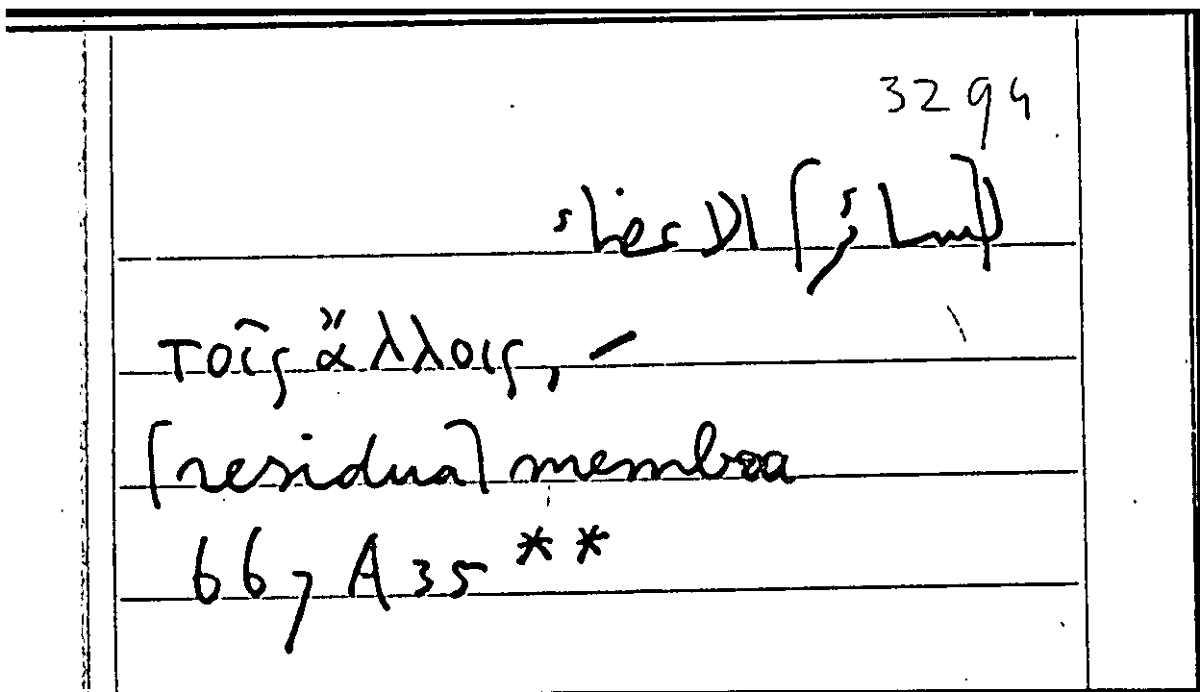 3294
ل[سائر] الاعضاء
τοῖς ἄλλοις, –
[residua] membra
667 A 35 **